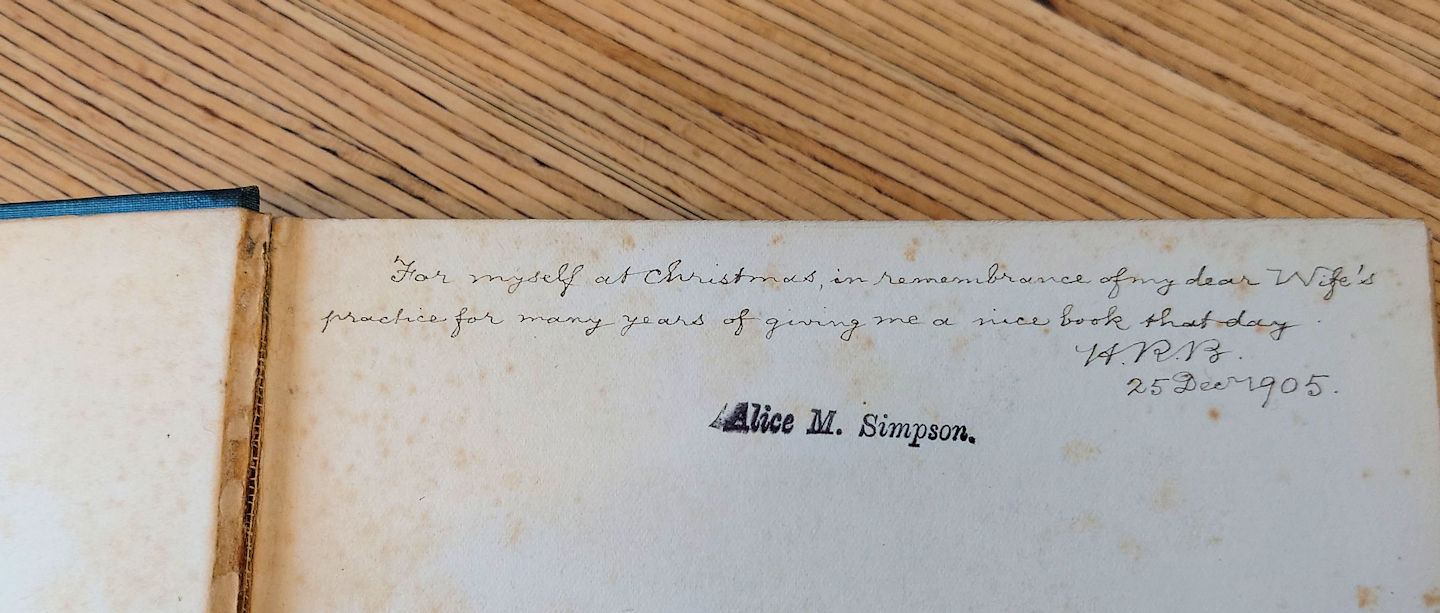 For myself at Christmas, in remembrance of my dear Wife's
practice for many years of giving me a nice book that day
H.R.B.
25 Decr 1905.
Alice M. Simpson.